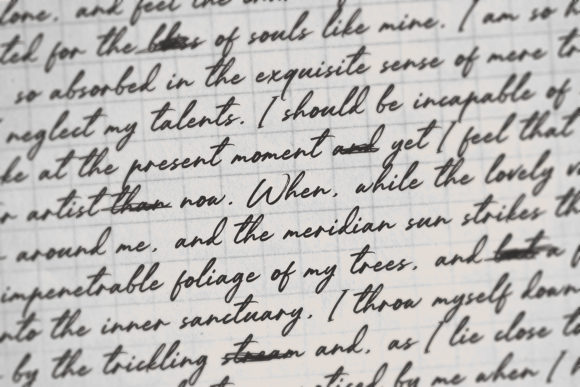 lone, and feel the
ted for the bliss of souls like mine. I am so
so absorbed in the exquisite sense of mere
neglect my talents. I should be incapable of
ke at the present moment and yet I feel that
r artist than now. When, while the lovely v
around me, and the meridian sun strikes th
impenetrable foliage of my trees, and but a
nto the inner sanctuary, I throw myself down
by the trickling stream and, as I lie close t
by me when I